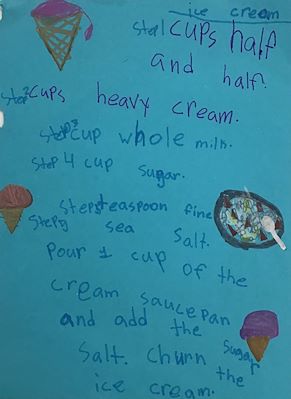 ice cream
Step1 cups half
and half.
Step2 cups heavy cream.
Step3 cup whole milk.
Step 4 cup sugar.
Step5 teaspoon fine
Step sea salt.
Pour 1 cup of the
cream saucepan
and add the sugar
salt. Churn the
ice cream.